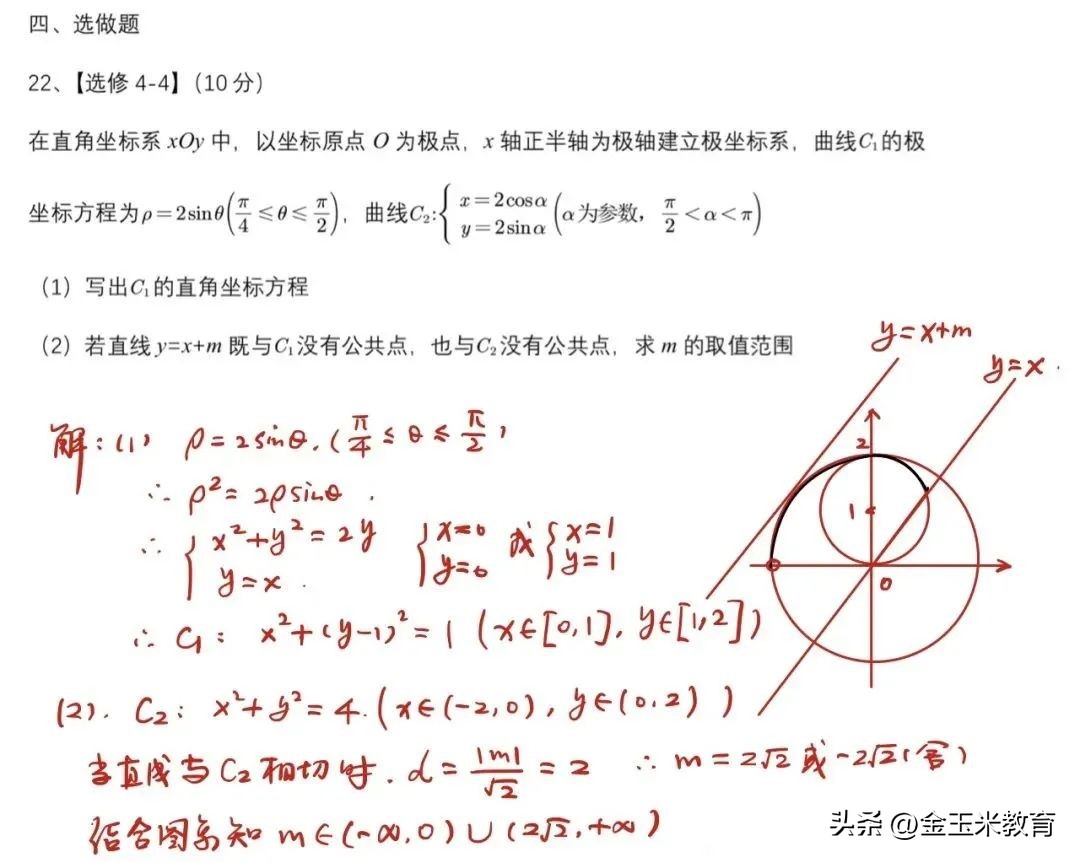 四、选做题
22、【选修 4-4】（10 分）
在直角坐标系 xOy 中，以坐标原点 O 为极点，x 轴正半轴为极轴建立极坐标系，曲线C₁的极
坐标方程为ρ=2sinθ(π/4≤θ≤π/2)，曲线C₂:{x=2cosα y=2sinα (α为参数，π/2<α<π)
（1）写出C₁的直角坐标方程
（2）若直线 y=x+m 既与C₁没有公共点，也与C₂没有公共点，求 m 的取值范围
y=x+m
y=x
2
1
0
解：(1) ρ=2sinθ.(π/4≤θ≤π/2)
∴ρ²=2ρsinθ.
∴{x²+y²=2y y=x. {x=0 y=0 或{x=1 y=1
∴C₁：x²+(y-1)²=1 (x∈[0,1],y∈[1,2])
(2). C₂：x²+y²=4.(x∈(-2,0),y∈(0,2))
当直线与C₂相切时.d=|m|/√2=2 ∴m=2√2或-2√2(舍)
结合图象知 m∈(-∞,0)∪(2√2,+∞)
头条 @金玉米教育